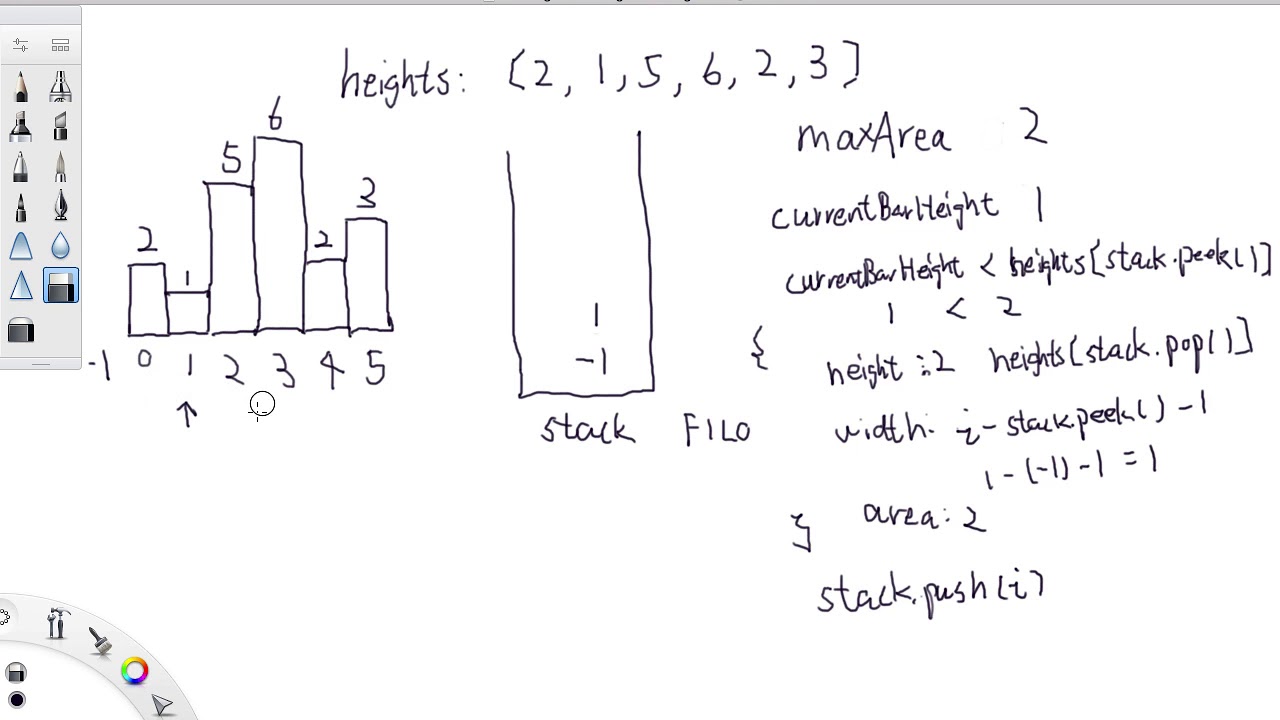 heights: [2, 1, 5, 6, 2, 3]
maxArea 2
6
5
3
2
1
2
currentBarHeight 1
currentBarHeight < heights[stack.peek()]
1 < 2
{
height : 2 heights[stack.pop()]
1
-1
-1 0 1 2 3 4 5
stack FILO
width: i - stack.peek() - 1
1 - (-1) - 1 = 1
area: 2
}
stack.push(i)